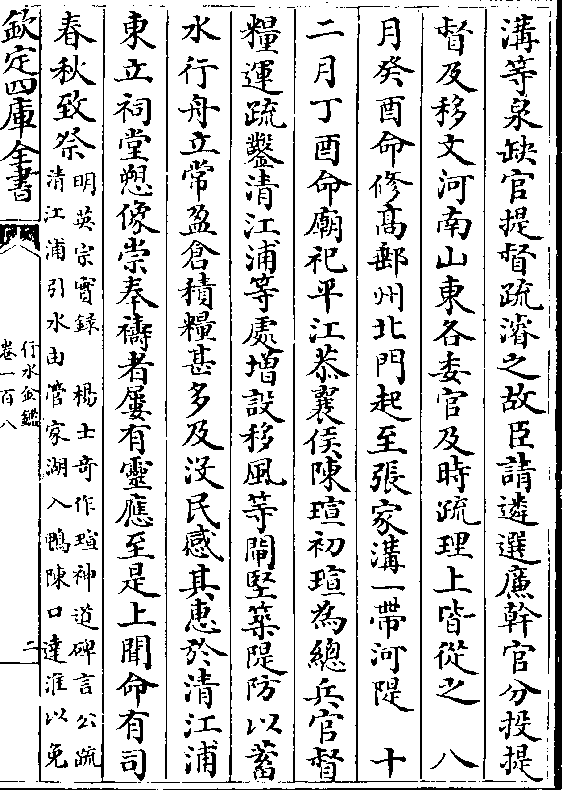 溝等泉缺官提督疏濬之故臣請遴選廉幹官分投提
督及移文河南山東各委官及時疏理上皆從之　八
月癸酉命修髙郵州北門起至張家溝一帶河隄　十
二月丁酉命廟祀平江恭襄侯陳瑄初瑄為總兵官督
糧運疏鑿清江浦等處増設移風等閘堅築隄防以蓄
水行舟立常盈倉積糧甚多及没民感其惠於清江浦
東立祠堂塑像崇奉禱者屢有靈應至是上聞命有司
春秋致祭
明英宗實録　楊士奇作瑄神道碑言公疏
清江浦引水由管家湖入鴨陳口達淮以免
欽定四庫全書
行水金鑑
卷一百八
二